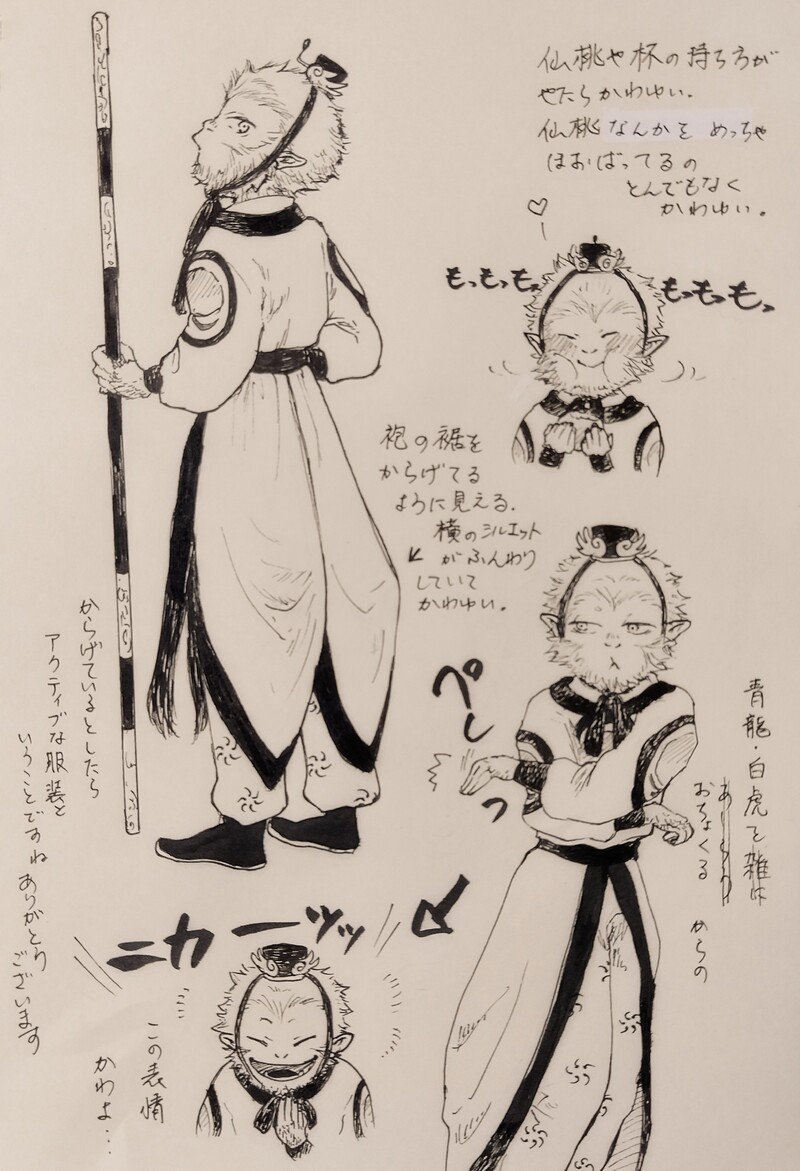 仙桃や杯の持ち方が
やたらかわゆい。
仙桃なんかをめっちゃ
ほおばってるの
とんでもなく
かわゆい。
もっもっもっ
もっもっもっ
袍の裾を
からげてる
ように見える.
横のシルエット
がふんわり
していて
かわゆい。
ペしっ
青龍・白虎を雑に
おちょくる
からの
からげているとしたら
アクティブな服装と
いうことですね
ありがとう
ございます
ニカーッッ
この表情
かわよ…